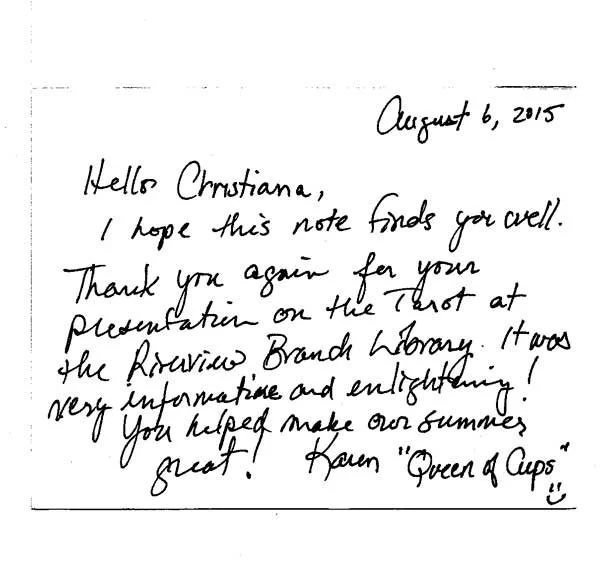 August 6, 2015
Hello Christiana,
I hope this note finds you well.
Thank you again for your
presentation on the Tarot at
the Riverview Branch Library. It was
very informative and enlightening!
You helped make our summer
great! Karen "Queen of Cups"